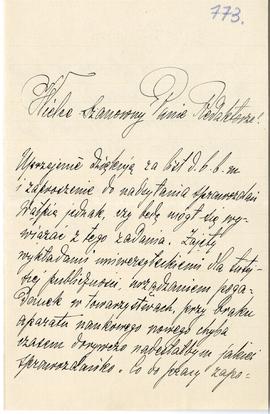 773.
Wielce Szanowny Panie Redaktorze!
Uprzejmie dziękuję za list d. b. b. m
i zaproszenie do nadsyłania sprawozdań
Wątpię jednak, czy będę mógł się wy-
wiązać z tego zadania. Zajęty
wykładami uniwersyteckiemi dla tutej-
szej publiczności, urządzaniem poga-
danek w towarzystwach, przy braku
aparatu naukowego nowego chyba
czasem dorywczo nadesłałbym jakieś
sprawozdańko. Co do prasy zapo-